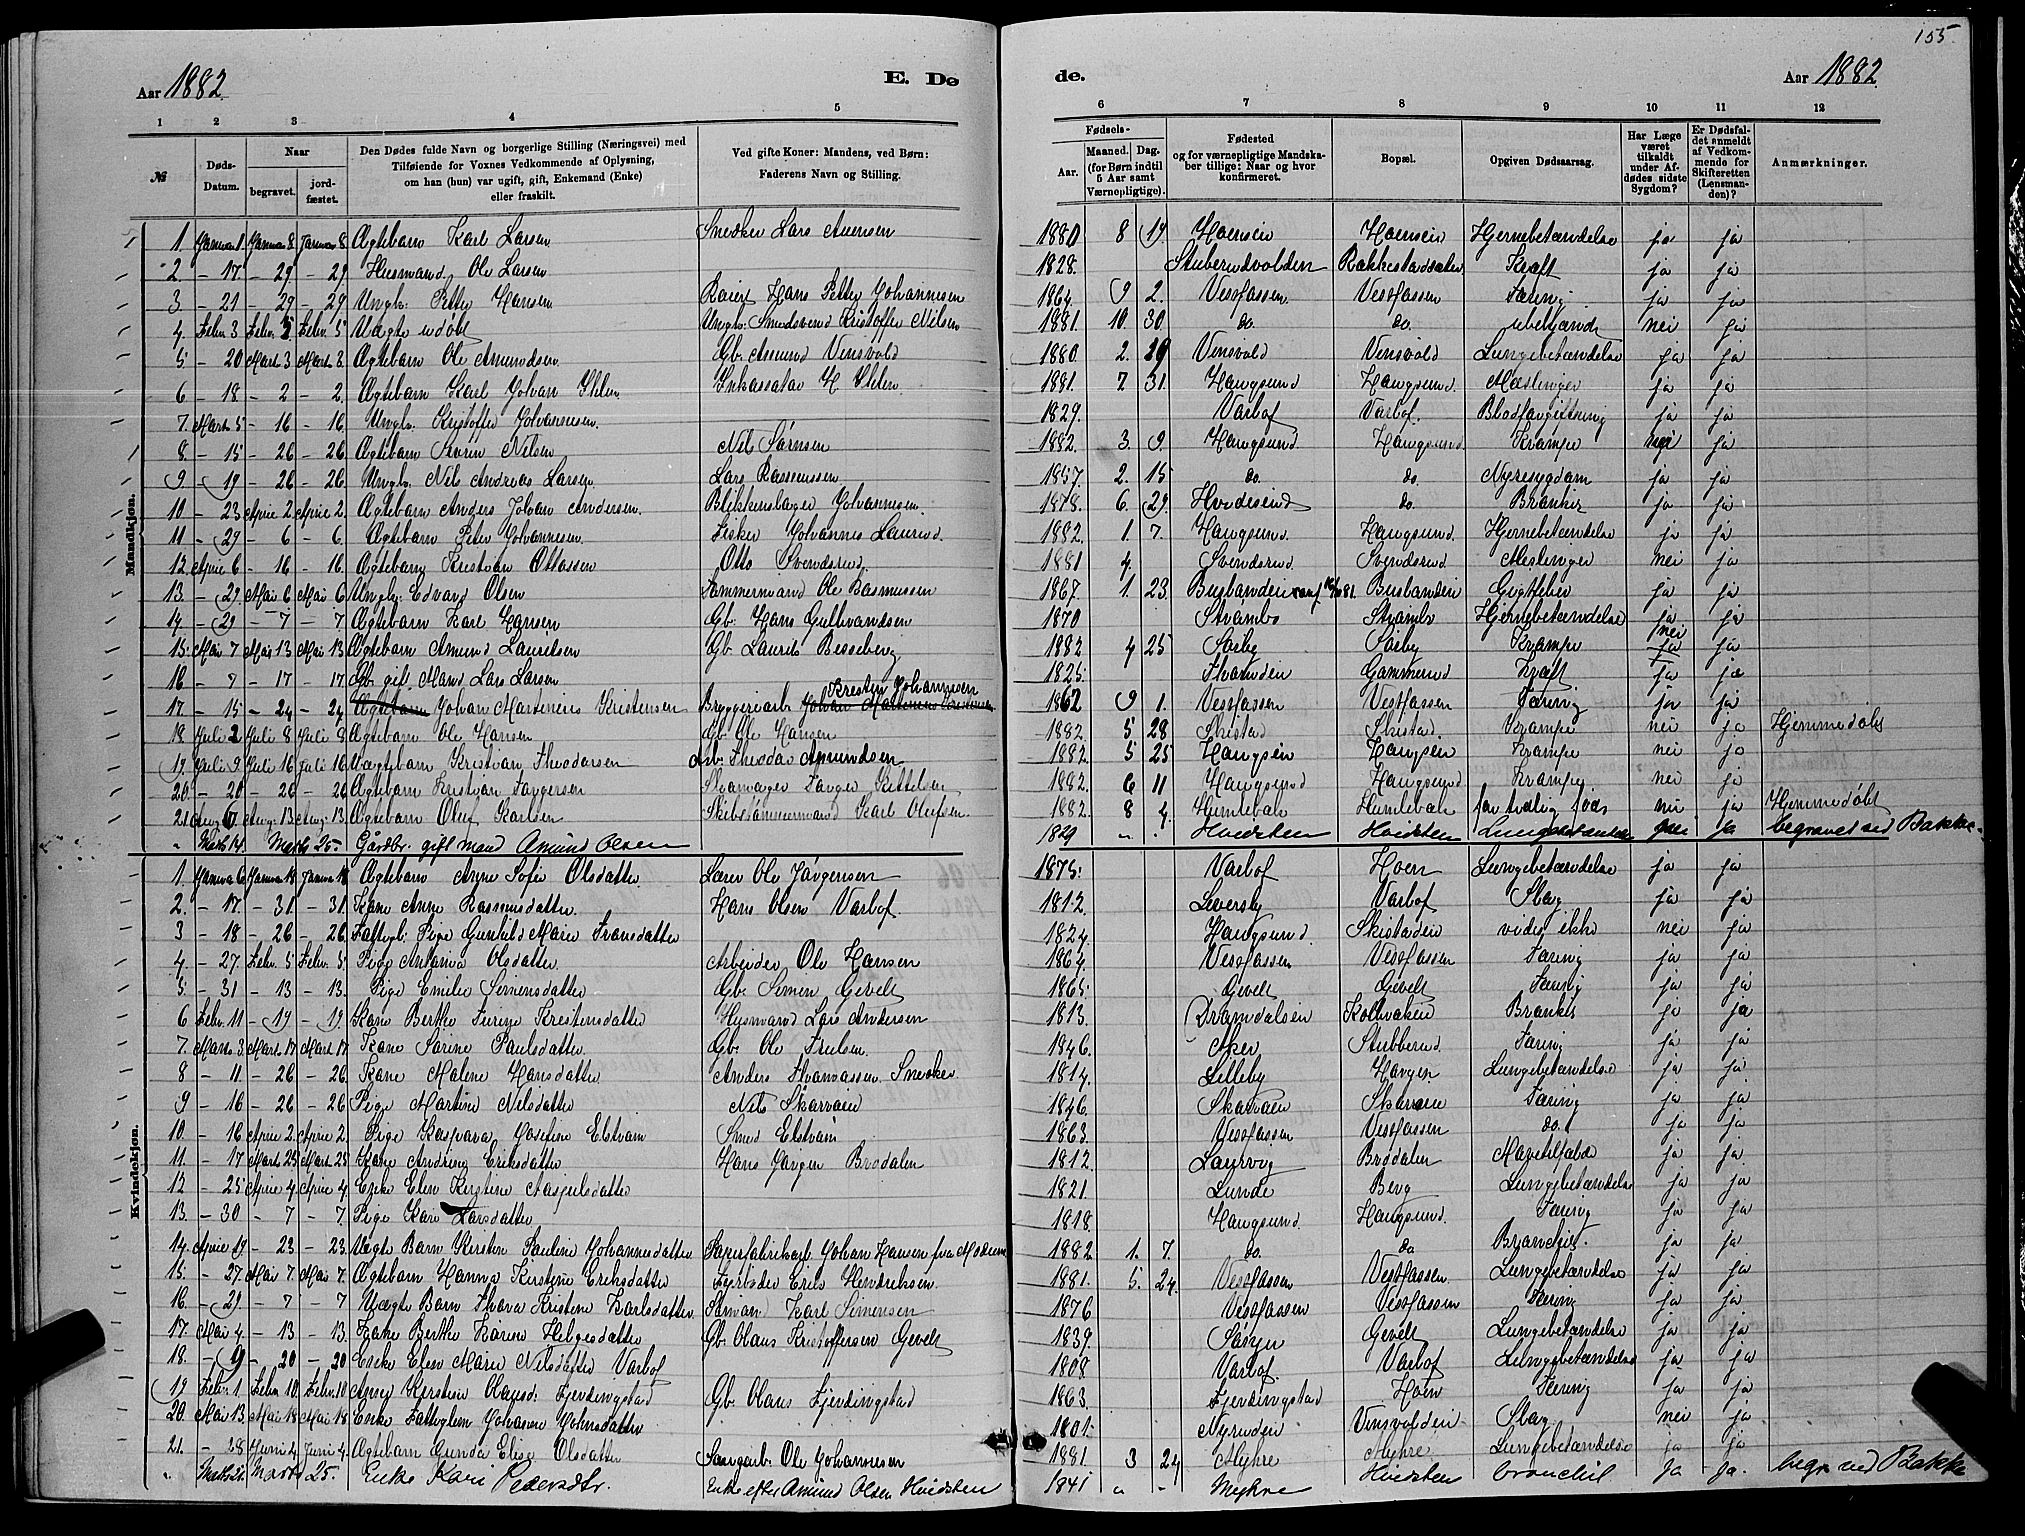 155
Aar 1882. E. Døde. Aar 1882
1 2 3 4 5 6 7 8 9 10 11 12
№ Døds-Datum. Naar begravet. jordfæstet. Den Dødes fulde Navn og borgerlige Stilling (Næringsvei) med Tilføiende for Voxnes Vedkommende af Oplysning, om han (hun) var ugift, gift, Enkemand (Enke) eller fraskilt. Ved gifte Koner: Mandens, ved Børn: Faderens Navn og Stilling. Fødsels- Aar. Maaned. Dag. (for Børn indtil 5 Aar samt Værnepligtige). Fødested og for værnepligtige Mandskaber tillige: Naar og hvor konfirmeret. Bopæl. Opgiven Dødsaarsag. Har Læge været tilkaldt under Afdødes sidste Sygdom? Er Dødsfaldet anmeldt af Vedkommende for Skifteretten (Lensmanden)? Anmærkninger.
Mandkjøn.
1. Janua 1 Janua 8 Janua 8 Ægtebarn Karl Larsen Snedker Lars Auensen 1880 8 19. Hoensein Hoensein Hjernebetændelse ja ja
2 - 17 - 29 - 29 Husmand Ole Larsen 1828. Stuberudvolden Rakkestadsæter Kræft ja ja
3 - 21 - 29 - 29 Ungk. Petter Hansen Hans Petter Johannesen 1864. 9 2. Vestfossen Vestfossen Tæring ja ja
4. Febr. 3 Febr. 5 Febr. 5 Uægte udøbt Ungk. Smedsvend Kristoffer Nilsen 1881. 10. 30 do. do. ubekjendt nei ja
5 - 20 Mart. 3 Mart. 3 Ægtebarn Ole Amundsen Gb. Amund Vinsvold 1880. 2. 29 Vinsvold Vinsvold Lungebetændelse ja ja
6 - 18 - 2 - 2. Ægtebarn Karl Johan Ihlen Inkassator H Ihlen 1881. 7. 31. Haugsund Haugsund Mæslinger ja ja
7. Mart. 5 - 16 - 16. Ungk. Kristoffer Johannesen. 1829. Varlof Varlof. Blodforgiftning ja ja
8 - 15 - 26 - 26 Ægtebarn Severin Nilsen Nils Sørnsen 1882. 3. 9. Haugsund Haugsund Krampe nei ja
9. - 19 - 26 - 26. Ungk. Nils Andreas Larsen Lars Rasmussen 1857. 2. 15 do. do. Nyresygdom ja ja
10 - 23 Aprie 2. Aprie 2. Ægtebarn Anders Johan Andersen. Blikkenslager Johannesen. 1878. 6. 29. do. Bronkit ja ja
11 - 29 - 6 - 6. Ægtebarn Peter Johannesen. Fisker Johannes Laurud. 1882. 1. 7. Haugsund. Haugsund. Hjernebetændelse ja ja
12. Aprie 6 - 16 - 16. Ægtebarn Kristian Ottossen Otto Svendsrud. 1881 4. Svendsrud. Svendsrud Meslinger nei ja
13. - 29. Mai 6 Mai 6 Ungk. Edvard Olsen Tømmermand Ole Rasmussen 1867. 1. 23. Buslandein 81. Buslandein Gigtfeber ja ja
14. - 29 - 7 - 7. Ægtebarn Karl Hansen Gb. Hans Gulbrandsen 1870 Strømbo Strømbo Hjernebetændelse ja ja
15. Mai 7 Mai 13 Mai 13 Ægtebarn Amund Lauritsen Gb. Laurits Besseberg 1882 4 25 Saiby Saiby Krampe nei ja
16 - 7 - 17 - 17 Gb. gift Mand Lars Larsen 1825. Gammerud Kræft ja ja
17. - 15 - 24 - 24 Johan Martinius Kristensen Bryggeriarb. Kresten Johannesen 1862 9 1. Vestfossen Vestfossen Tæring ja ja
18 Juli 2 Juli 8 Juli 8 Ægtebarn Ole Hansen Gb. Ole Hansen 1882. 5 28 Skistad Skistad. Krampe nei ja Hjemmedøbt
19. Juli 9 Juli 16 Juli 16 Uægtebarn Kristian Theodorsen Arb. Theodor Amundsen 1882 5 25 Haugsein Haugsen Krampe nei ja
20. - 20 - 26 - 26 Ægtebarn Kristian Torgersen Skomager Torger Kittelsen 1882. 6 11 Haugsund Haugsund Krampe nei ja
21. Aug. 6 Aug. 13 Aug. 13 Ægtebarn Oluf Karlsen Skibstømmermand Karl Olufsen 1882 8 4. Humlebæk Humlebæk for tidlig føds nei ja Hjemmedøbt
" Marts 14. Marts 25. Gårdbr. gift mand Amund Olsen 1829 " Hvidsten Hvidsten Lungebetændelse nei ja begravet ved Bakke.
Kvindekjøn.
1. Janua 6 Janua 18 Janua 18 Ægtebarn Anne Sofie Olsdatter Lærer Ole Jørgensen 1875. Varlof Hoen Lungebetændelse ja ja
2. - 17. - 31. - 31. Kone Anne Rasmusdatter. Hans Olsen Varlof. 1812. Leversby Varlof Slag ja ja
3 - 18 - 26 - 26 Fattigl. Pige Gunhild Marie Fransdatter 1824. Haugsund. Skistadein vides ikke nei ja
4. - 27. Febr. 5 Febr. 5 Pige Antonia Olsdatter. Arbeider Ole Hansen 1864. Vestfossen Vestfossen Tæring ja ja
5. - 31 - 13 - 13. Pige Emilie Simensdatter Gb. Simen Gevelt 1865. Gevelt Gevelt Tæring ja ja
6 Febr. 11 - 19 - 19. Kone Berthe Turine Kristensdatter Husmand Lars Andersen 1813. Dramdalsein Kolbraken Bronkit ja ja
7. Marts 3. Mart. 17 Mart. 17. Kone Sørine Paulsdatter Gb. Ole Iuelsen. 1846. Aker Stubberud. Tæring ja ja
8 - 11. - 26 - 26. Kone Malene Hansdatter. Anders Thomassen Snedker 1814. Lilleby Haugen Lungebetændelse ja ja
9 - 16 - 26 - 26 Pige Martine Nilsdatter Nils Skarraen 1846. Skarraen Skarraen Tæring ja ja
10. - 16 Aprie 2. Aprie 2. Pige Kaspara Josefine Elstrøm Smed Elstrøm 1863. Vestfossen Vestfossen do. ja ja
11. - 17 Mart. 25 Mart. 25 Kone Andrine Eriksdatter Hans Jørgen Brødalen 1812. Laurvig Brødalen Mavetilfælde ja ja
12 - 25 Aprie 4. Aprie 4. Enke Elen Kirstine Aasjulsdatter 1821. Lunde Berg Lungebetændelse ja ja
13. - 30 - 7 - 7. Pige Kari Larsdatter 1818. Haugsund. Haugsund. Tæring ja ja
14. Aprie 19 - 23 - 23 Uægte Barn Kirsten Pauline Johannesdatter Papirfabrikarb. Johan Hansen fra Modum 1882 1. 7. do. do Bronchit. ja ja
15. - 27. Mai 7. Mai 7. Ægtebarn Hanna Kirstine Eriksdatter Arbeider Eriks Hendriksen. 1881. 5. 24. Vestfossen Vestfossen Lungebetændelse ja ja
16. - 29. - 7 - 7 Uægte Barn Thora Kristine Karlsdatter Sømand Karl Simensen 1876 Vestfossen Vestfossen Tæring ja ja
17. Mai 4. - 13 - 13. Kone Berthe Karen Helgesdatter Gb. Olaus Kristoffersen Gevelt 1839. Gevelt Lungebetændelse ja ja
18. - 9 - 20 - 20 Enke Elen Marie Nilsdatter Varlof 1808. Varlof. Varlof Lungebetændelse ja ja
19. Febr. 1. Febr. 10 Febr. 10 Anne Kirstine Olausd. Fjerdingstad Gb. Olaus Fjerdingstad 1863. Fjerdingstad Hoen Tæring ja ja
20. Mai 13 Mai 18 Mai 18 Enke Fattiglem Johanne Johnsdatter 1801. Nyrudein Vinsvoldein Slag nei ja
21. - 28 Juni 4 Juni 4. Ægtebarn Gunda Elise Olsdatter Saugarb. Ole Johannesen 1881. 3 24 Myhre Myhre Lungebetændelse ja ja
" Marts 21. Marts 25. Enke Kari Pedersdtr. Enke efter Amund Olsen Hvidsten 1841 " - Myhre Hvidsten bronchit ja ja. begr. ved Bakke